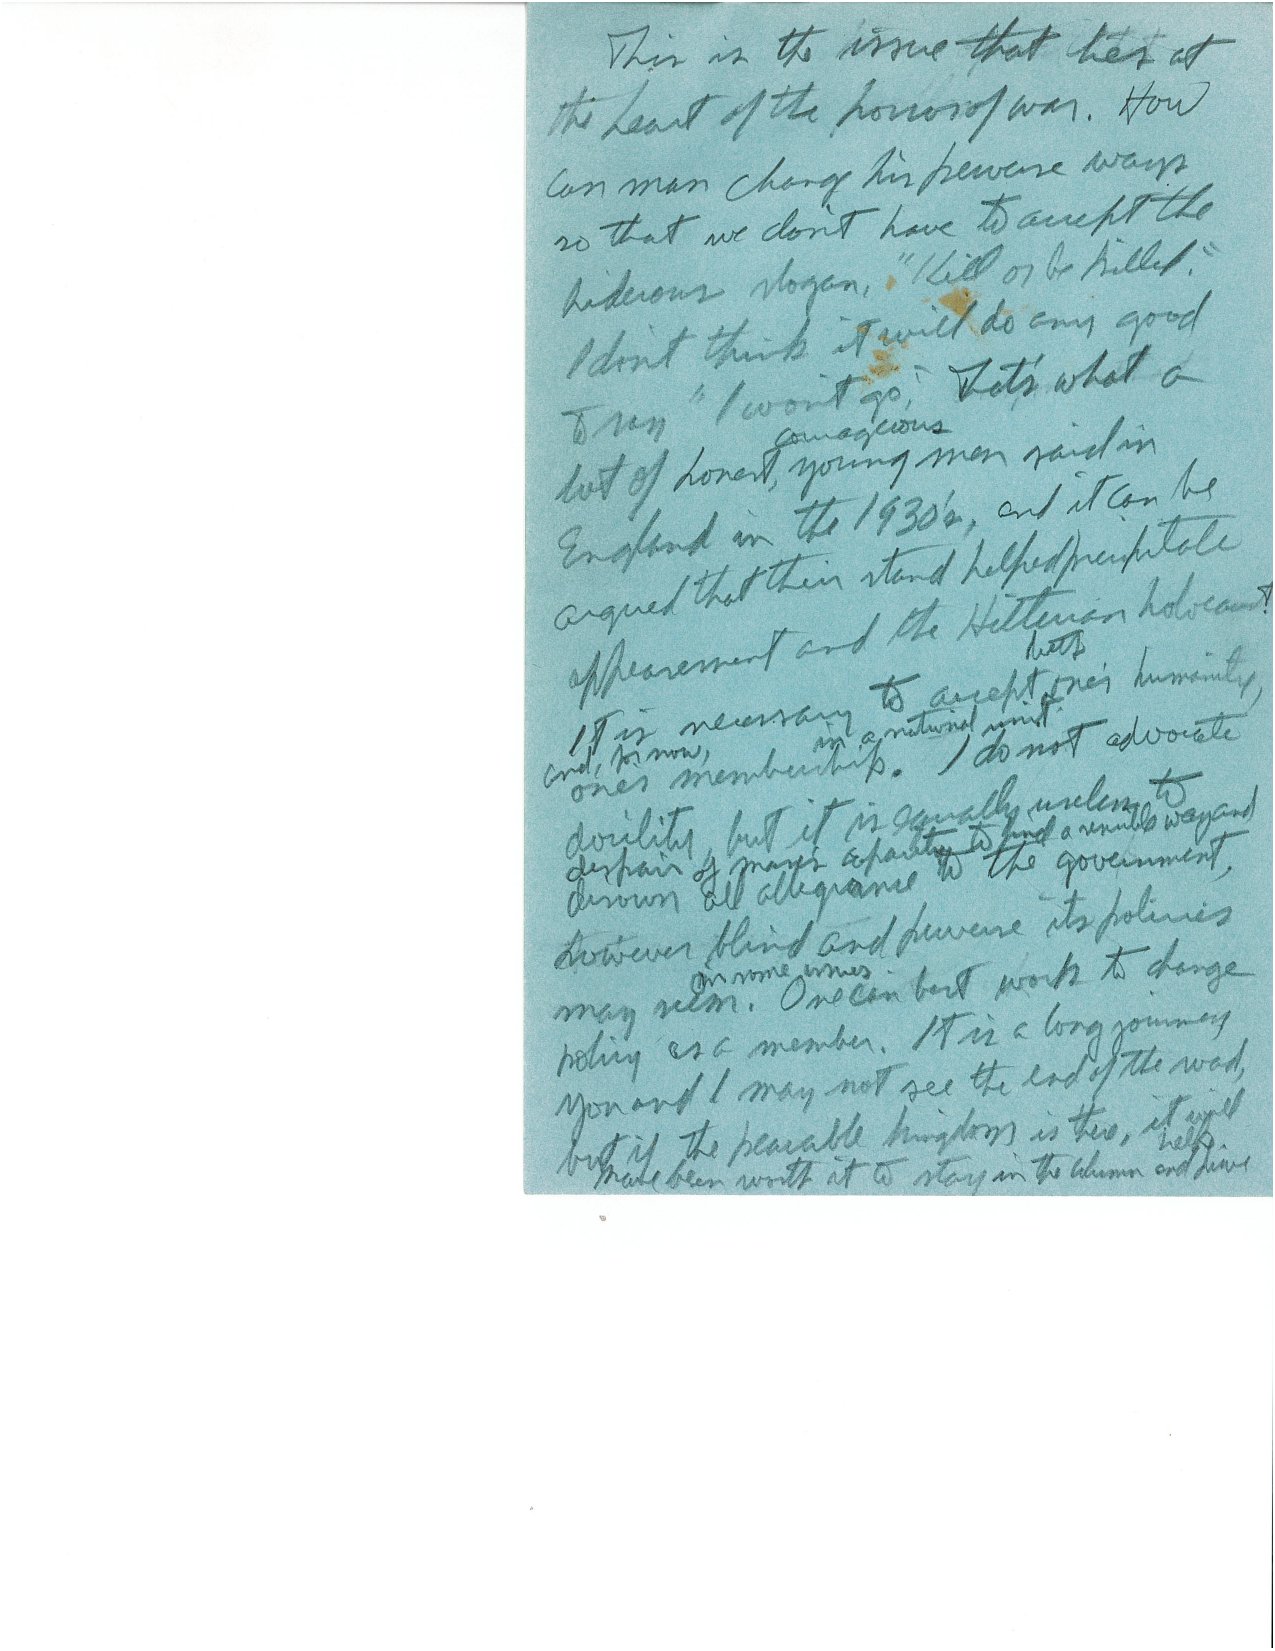 This is the issue that lies at
the heart of the horrors of war. How
can man change his perverse ways
so that we don't have to accept the
hideous slogan, "Kill or be killed."
I don't think it will do any good
to say "I won't go." That's what a
courageous
lot of honest, young men said in
England in the 1930's, and it can be
argued that their stand helped precipitate
appeasement and the Hitlerian holocaust.
both
It is necessary to accept one's humanity,
and, for now, in a national unit.
one's membership. I do not advocate
docility, but it is equally useless to
despair of man's capacity to find a sensible way and
disown all allegiance to the government,
however blind and perverse its policies
on some issues
may seem. One can best work to change
policy as a member. It is a long journey
You and I may not see the end of the road,
but if the peaceable kingdom is there, it will
help.
have been worth it to stay in the column and